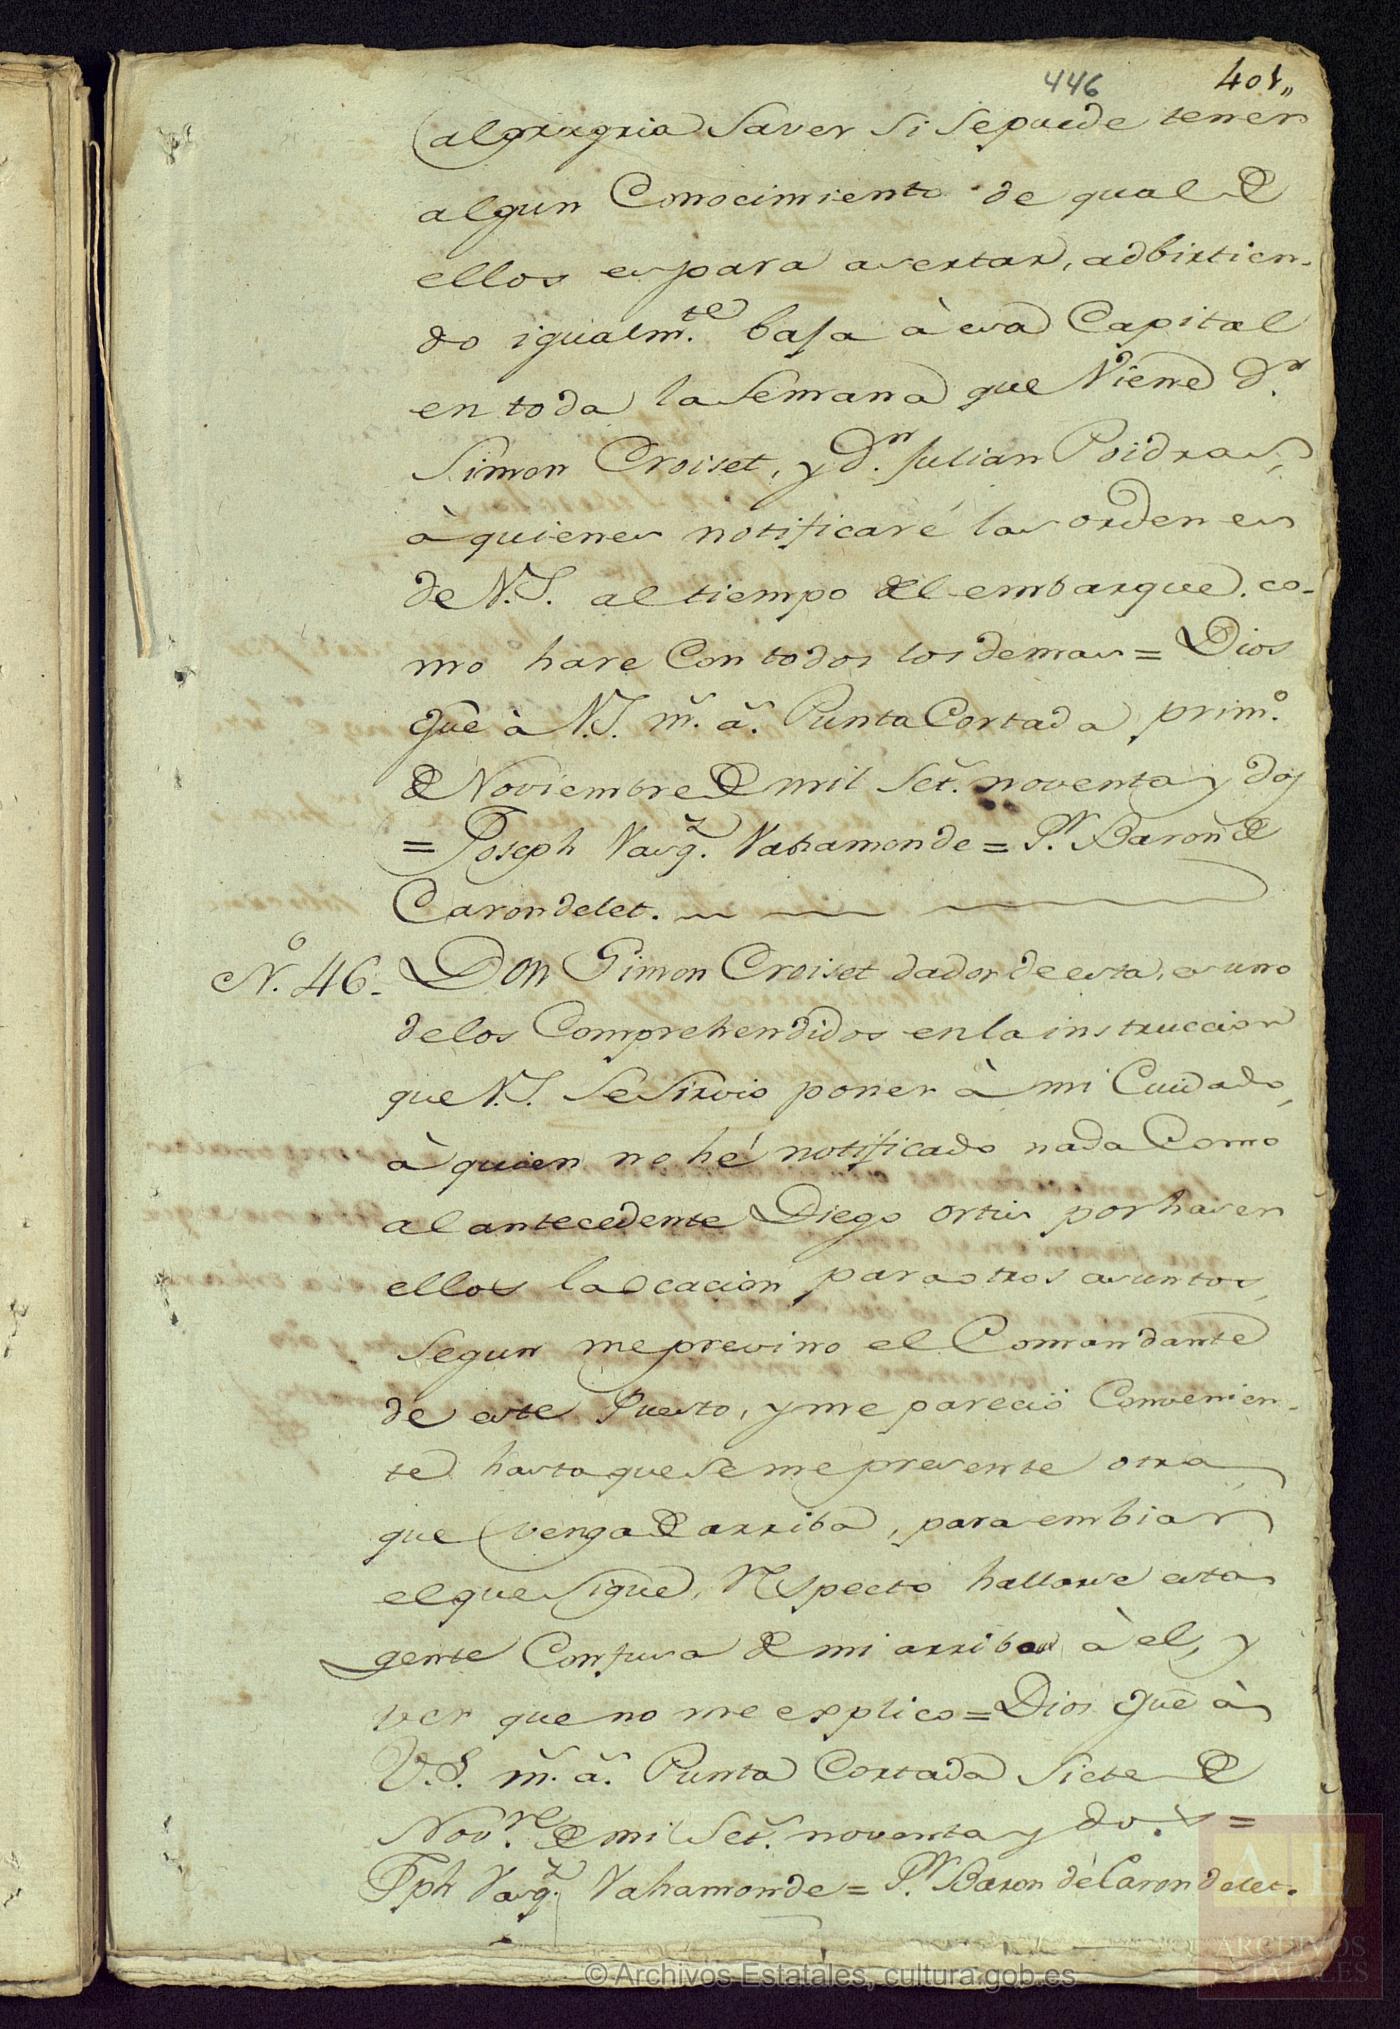 446 401,,
algregria Saver si Sepuede tener
algun Conocimiento de qual de
ellos es para asertar, adbirtien-
do igualm.te baja à esa Capital
en toda la Semana que Viene D.n
Simon Croiset, y D.n Julian Poidras,
à quienes notificaré las ordenes
de V.S. al tiempo del embarque, co-
mo hare Con todos los demas = Dios
gũe à V.S. m.s a.s Punta Cortada prim.o
de Noviembre de mil Set.s noventa y dos
= Joseph Vasq.z Vahamonde = S.or Baron de
Carondelet.
N.o 46. Don Simon Croiset dador de esta, es uno
delos Comprehendidos en la instruccion
que V.S. Se Sirvio poner à mi Cuidado,
à quien no hé notificado nada Como
al antecedente Diego Ortis por haser
ellos la ocacion para otros asuntos,
segun me previno el Comandante
de este Puesto, y me parecio Convenien-
te hasta que se me presente otra
que venga de arriba, para embiar
el que Sigue, respecto hallarse esta
gente Confusa de mi arribo à el, y
ver que no me explico = Dios gũe à
V.S. m.s a.s Punta Cortada Siete de
Nov.re de mil Set.s noventa y dos =
Jph Vasq.z Vahamonde = S.or Baron de Carondelet.
© Archivos Estatales, cultura.gob.es
AE
ARCHIVOS
ESTATALES